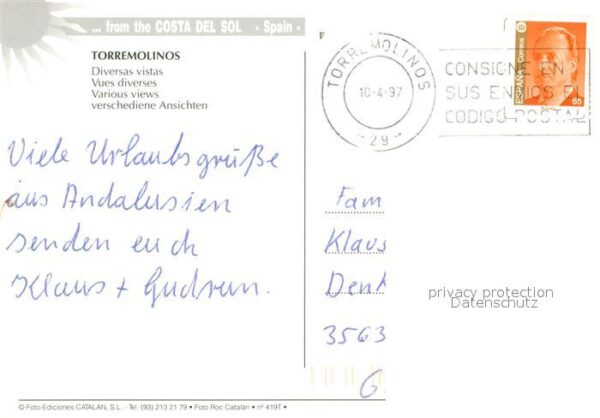 ... from the COSTA DEL SOL • Spain •
TORREMOLINOS
Diversas vistas
Vues diverses
Various views
verschiedene Ansichten
TORREMOLINOS
10-4-97
- 29 -
CONSIGNE EN
SUS ENVIOS EL
CODIGO POSTAL
ESPAÑA Correos
65
Viele Urlaubsgrüße
aus Andalusien
senden euch
Klaus + Gudrun.
Fam
Klaus
Denk
3563
G
privacy protection
Datenschutz
© Foto-Ediciones CATALAN, S.L. - Tel. (93) 213 21 79 • Foto Roc Catalán • nº 419T •